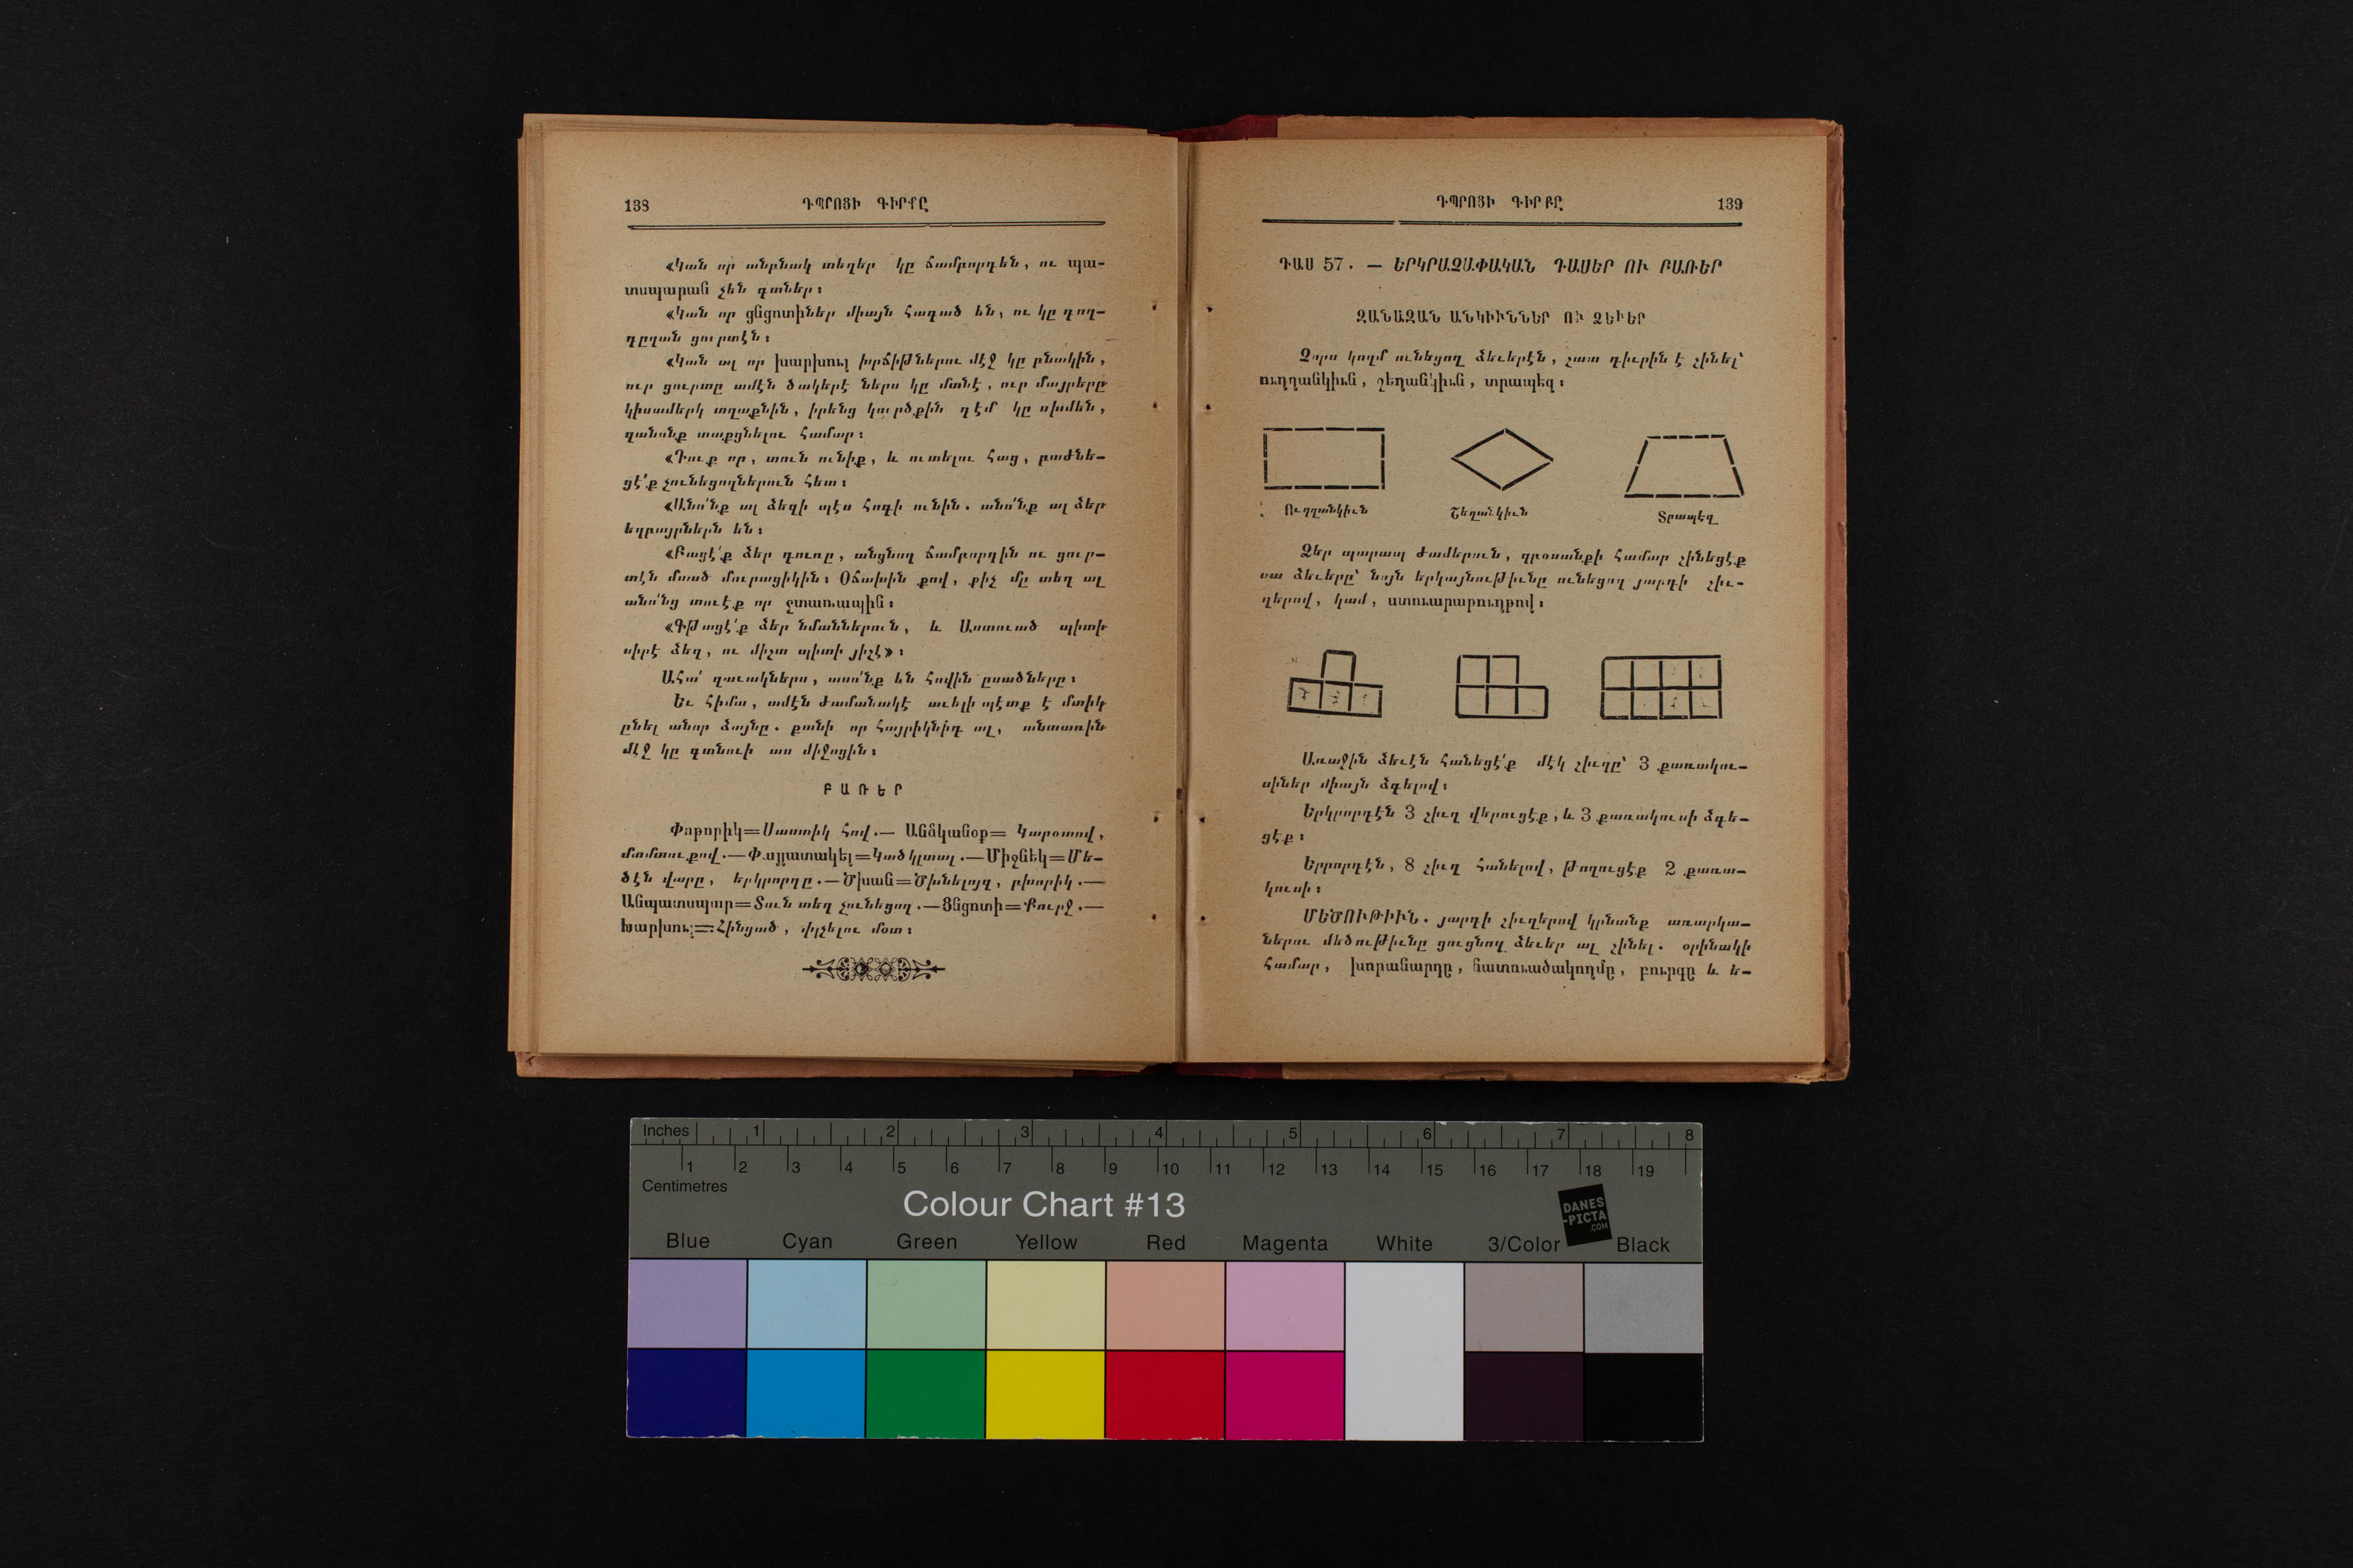 138
ԴՊՐՈՑԻ ԳԻՐՔԸ
«Կան որ անբնակ տեղեր կը ճամբորդեն, ու պա-
տսպարան չեն գտներ։
«Կան որ ցնցոտիներ միայն հագած են, ու կը դող-
դըղան ցուրտէն։
«Կան ալ որ խարխուլ խրճիթներու մէջ կը բնակին,
ուր ցուրտը ամէն ծակերէ ներս կը մտնէ, ուր մայրերը
կիսամերկ տղաքնին, իրենց կուրծքին դէմ կը սխմեն,
զանոնք տաքցնելու համար։
«Դուք որ, տուն ունիք, և ուտելու հաց, բաժնե-
ցէ՛ք չունեցողներուն հետ։
«Անո՛նք ալ ձեզի պէս հոգի ունին. անո՛նք ալ ձեր
եղբայրներն են։
«Բացէ՛ք ձեր դուռը, անցնող ճամբորդին ու ցուր-
տէն մսած մուրացիկին։ Օճախին քով, քիչ մը տեղ ալ
անո՛նց տուէք որ չտառապին։
«Գթացէ՛ք ձեր նմաններուն, և Աստուած պիտի
սիրէ ձեզ, ու միշտ պիտի յիշէ»։
Ահա՛ զաւակներս, ասո՛նք են հովին ըսածները։
Եւ հիմա, ամէն ժամանակէ աւելի պէտք է մտիկ
ընել անոր ձայնը. քանի որ հայրիկնիդ ալ, անտառին
մէջ կը գտնուի աս միջոցին։
ԲԱՌԵՐ
Փոթորիկ=Սաստիկ հով.— Անձկանօք= Կարօտով,
մտմտուքով.—Փայլատակել=Կածկլտալ.—Միջնեկ=Մե-
ծէն վարը, երկրորդը.—Ծխան=Ծխնելոյզ, բխորիկ.—
Անպատսպար=Տուն տեղ չունեցող.—Ցնցոտի=Քուրջ.—
Խարխուլ=Հինցած, փլչելու մօտ։
ԴՊՐՈՑԻ ԳԻՐՔԸ
139
ԴԱՍ 57. — ԵՐԿՐԱՉԱՓԱԿԱՆ ԴԱՍԵՐ ՈՒ ԲԱՌԵՐ
ԶԱՆԱԶԱՆ ԱՆԿԻՒՆՆԵՐ ՈՒ ՁԵՒԵՐ
Չորս կողմ ունեցող ձեւերէն, շատ դիւրին է շինել՝
ուղղանկիւն, շեղանկիւն, տրապէզ։
Ուղղանկիւն
Շեղանկիւն
Տրապէզ
Ձեր պարապ ժամերուն, զբօսանքի համար շինեցէք
սա ձեւերը՝ նոյն երկայնութիւնը ունեցող յարդի շիւ-
ղերով, կամ, ստուարաթուղթով։
Առաջին ձեւէն հանեցէ՛ք մէկ շիւղը՝ 3 քառակու-
սիներ միայն ձգելով։
Երկրորդէն 3 շիւղ վերուցէք, և 3 քառակուսի ձգե-
ցէք։
Երրորդէն, 8 շիւղ հանելով, թողուցէք 2 քառա-
կուսի։
ՄԵԾՈՒԹԻՒՆ. յարդի շիւղերով կրնանք առարկա-
ներու մեծութիւնը ցուցնող ձեւեր ալ շինել. օրինակի
համար, խորանարդը, հատուածակողմը, բուրգը և ե-
Inches 1 2 3 4 5 6 7 8
1 2 3 4 5 6 7 8 9 10 11 12 13 14 15 16 17 18 19
Centimetres
Colour Chart #13
DANES
-PICTA
.COM
Blue Cyan Green Yellow Red Magenta White 3/Color Black